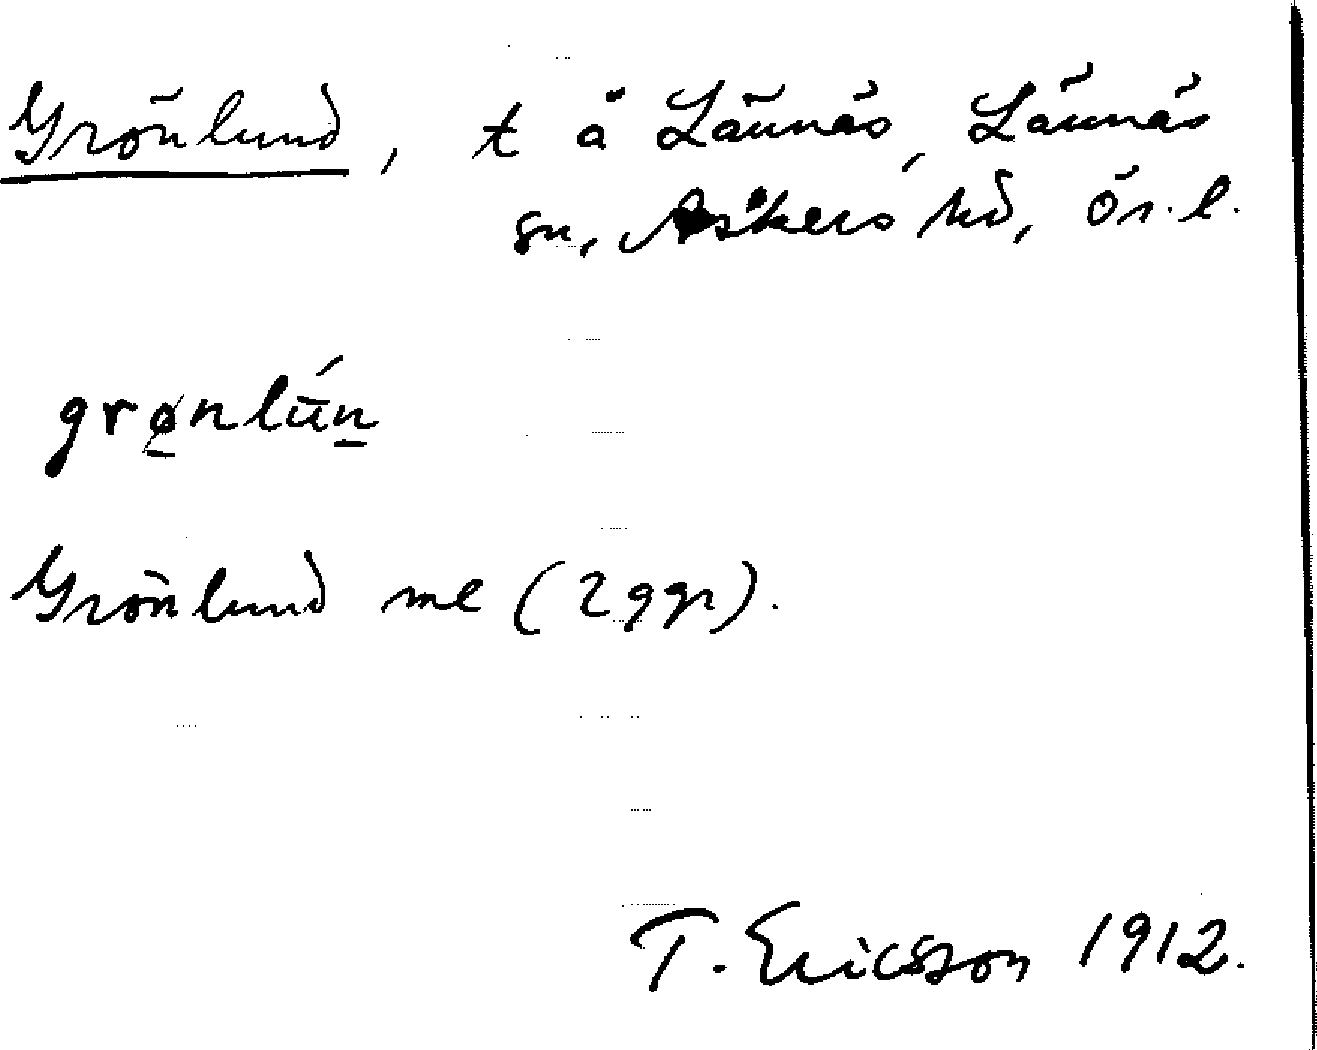 Grönlund, t å Lännäs, Lännäs
sn, Askers hd, Ör. l.
grø̲nlún̲
Grönlund me (2 ggr).
T. Ericsson 1912.